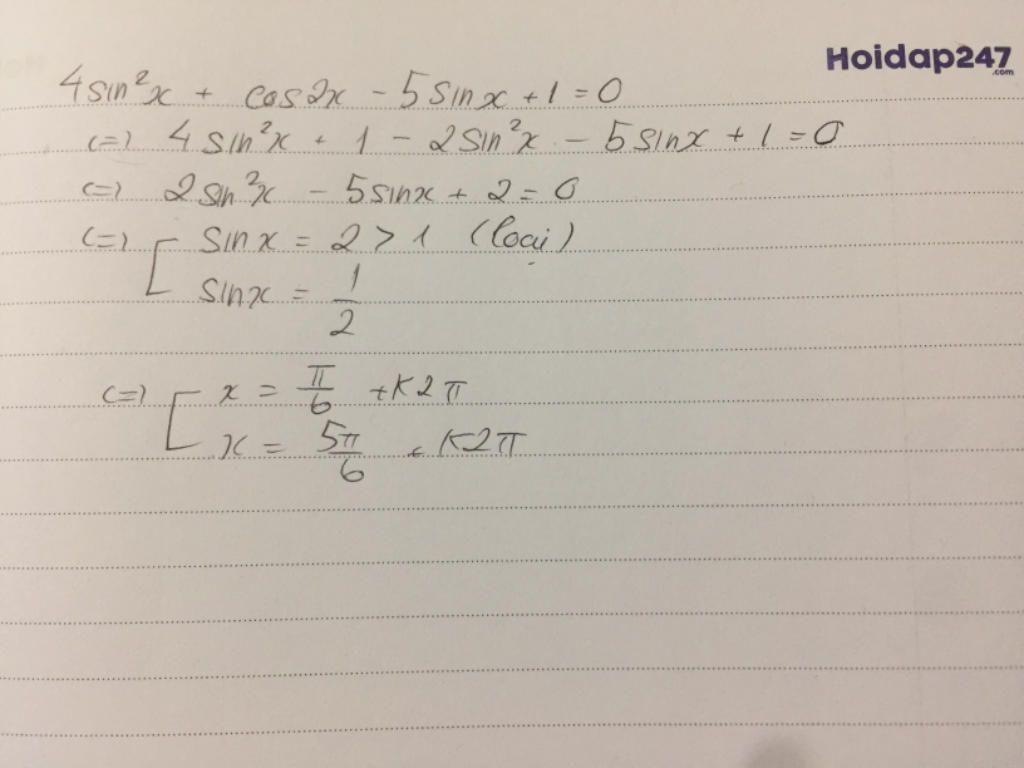 Hoidap247
.com
4sin²x + cos2x - 5sinx + 1 = 0
(=) 4sin²x + 1 - 2sin²x - 5sinx + 1 = 0
(=) 2sin²x - 5sinx + 2 = 0
(=) [ sinx = 2 > 1 (loại)
sinx = 1/2
(=) [ x = π/6 + K2π
x = 5π/6 + K2π